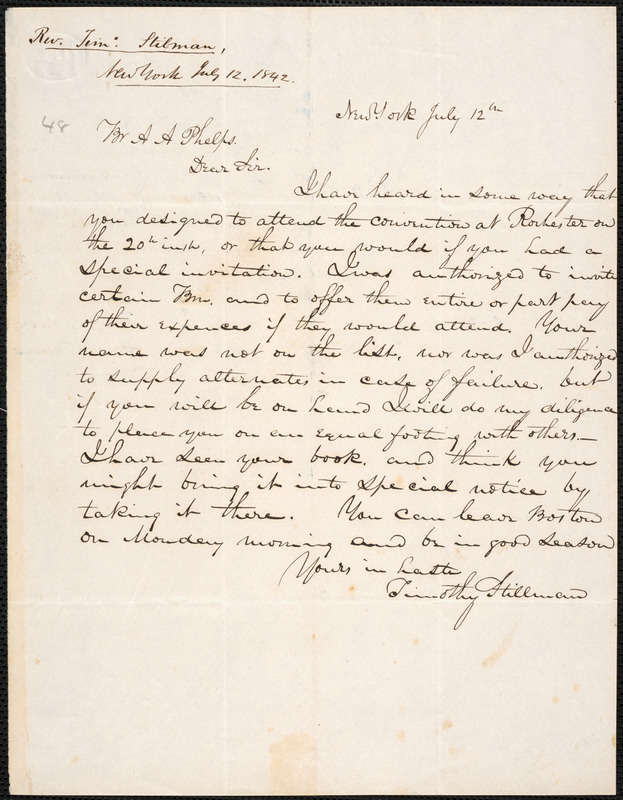 Rev. Timo. Stilman,
New York July 12. 1842.
48
New York July 12th
Br A A Phelps.
Dear Sir.
I have heard in some way that
you designed to attend the convention at Rochester on
the 20th inst, or that you would if you had a
special invitation. I was authorized to invite
certain Brn. and to offer them entire or part pay
of their expences if they would attend. Your
name was not on the list, nor was I authorized
to supply alternates in case of failure, but
if you will be on hand I will do my diligence
to place you on an equal footing with others.—
I have seen your book, and think you
might bring it into special notice by
taking it there. You can leave Boston
on Monday morning and be in good season
Yours in haste
Timothy Stillman